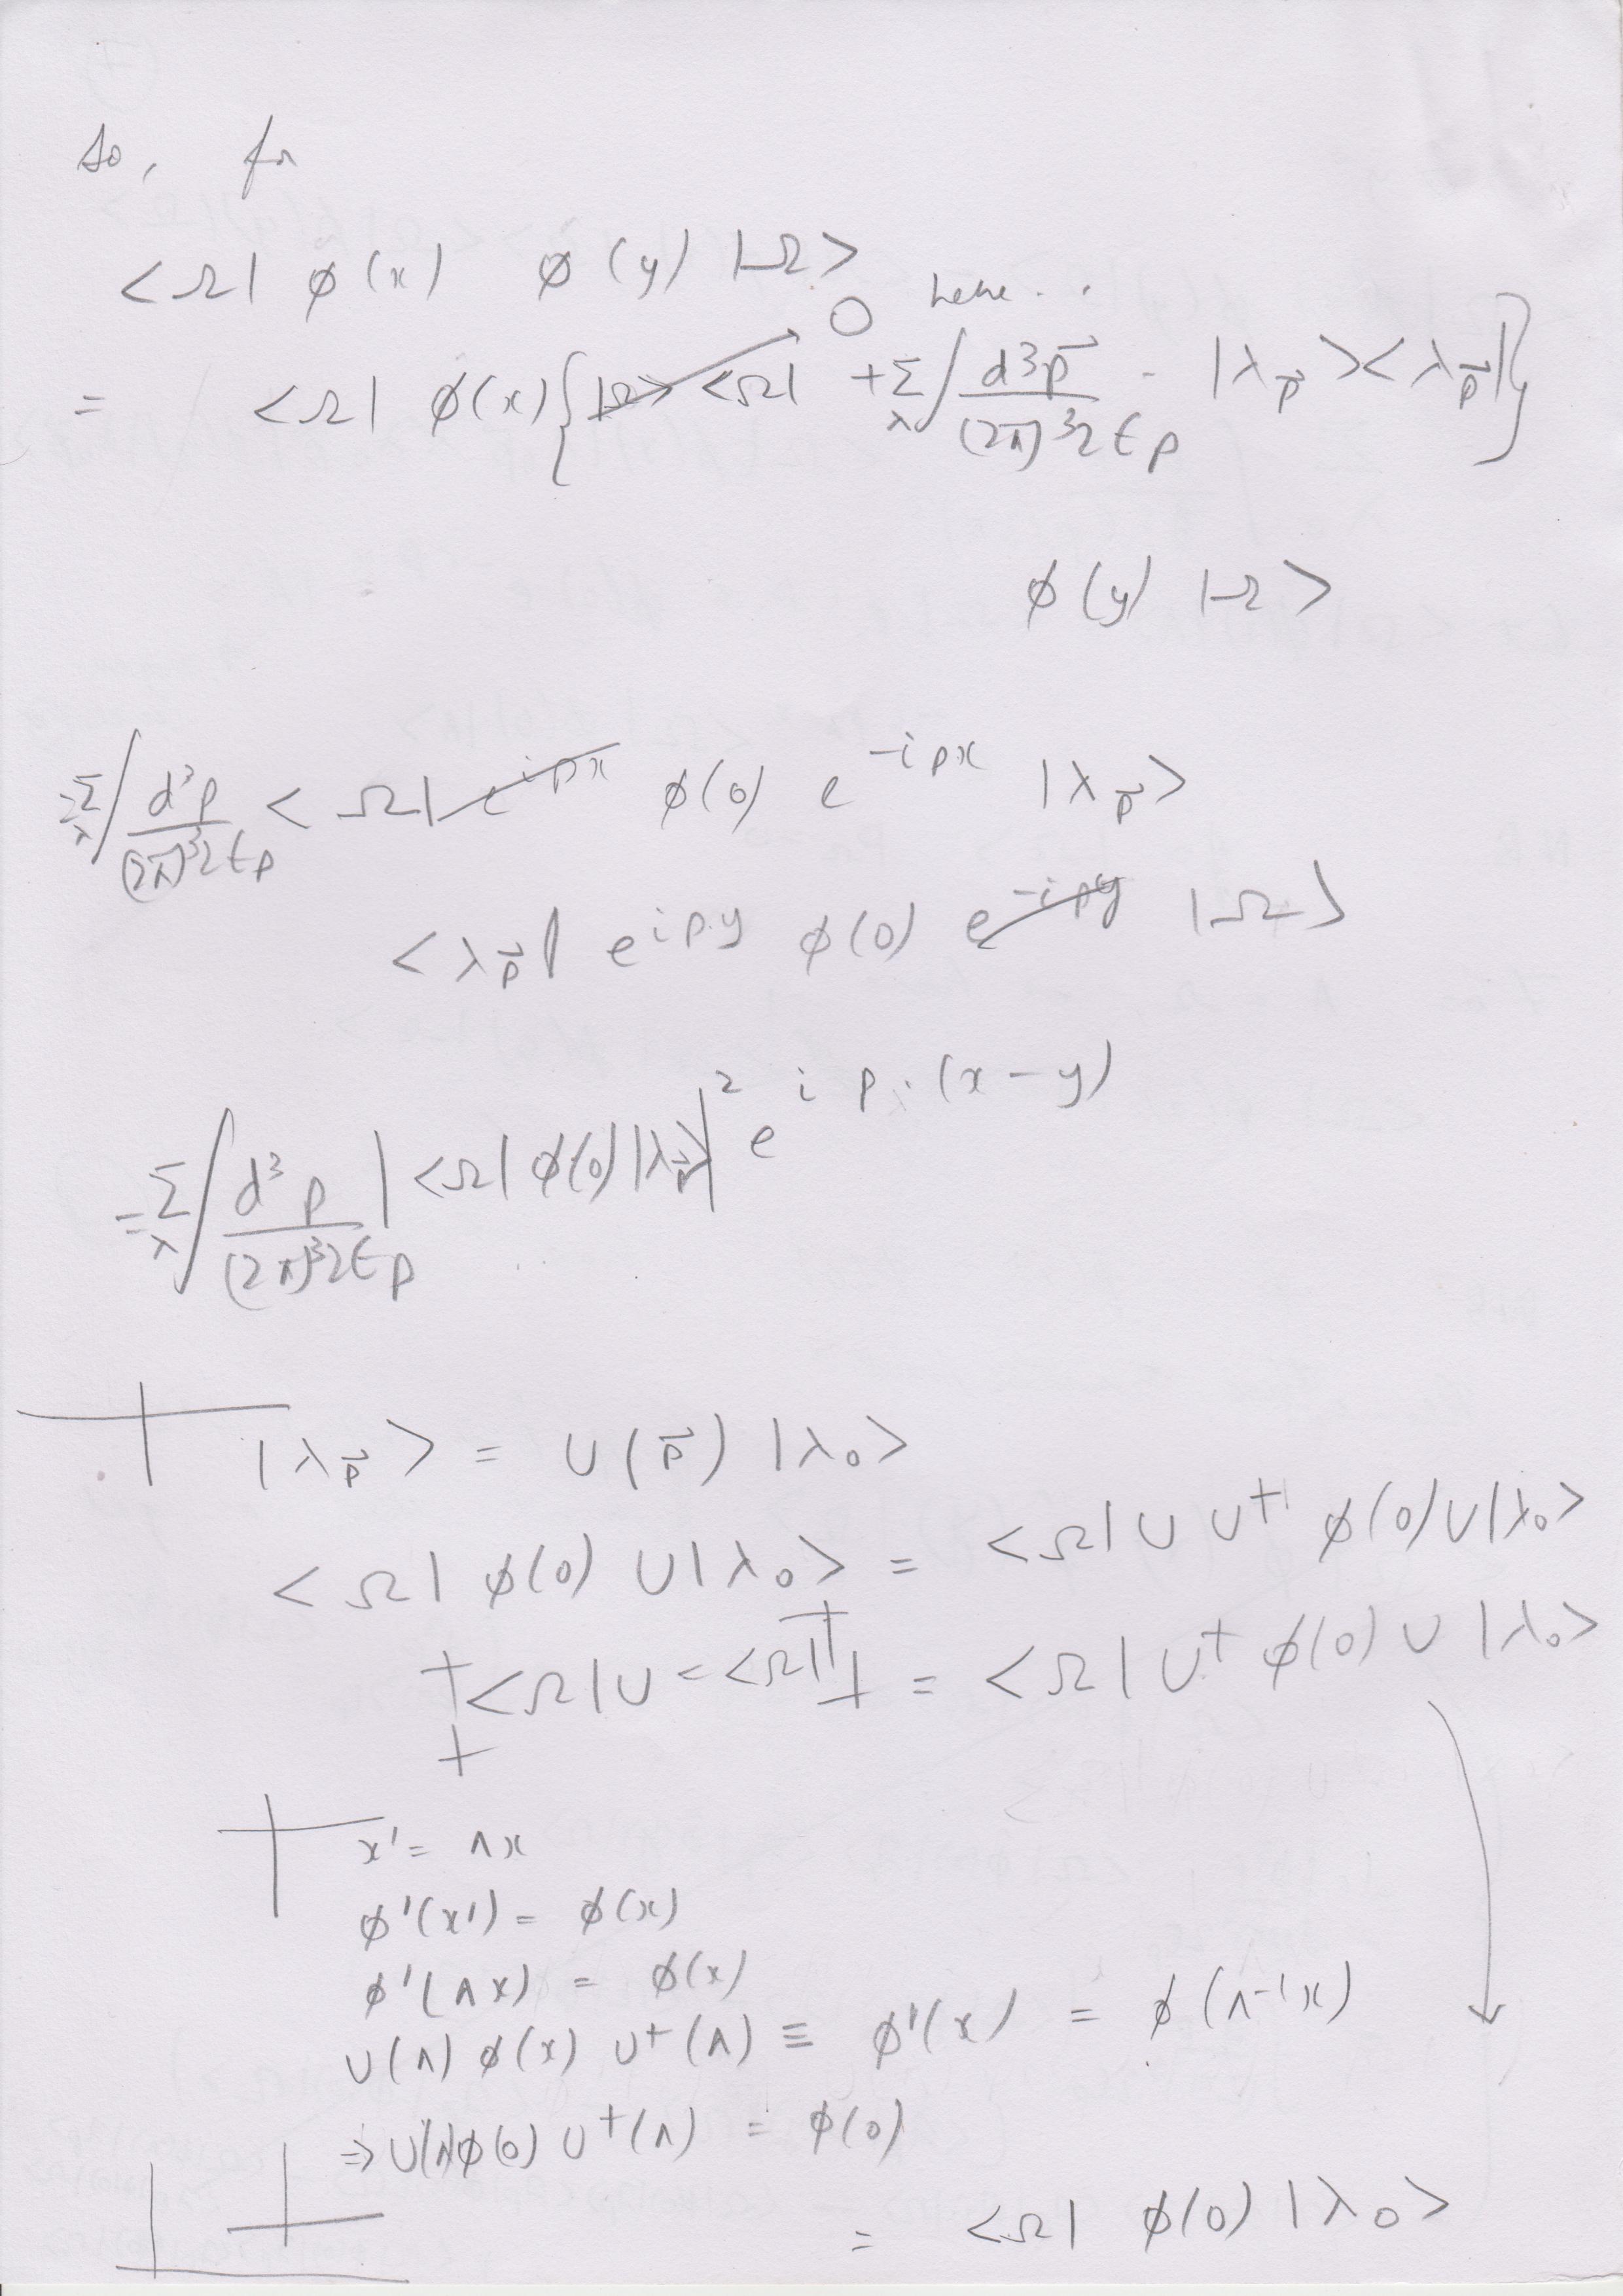 So, for
<Ω| φ(x) φ(y) |Ω>
0 here..
= <Ω| φ(x){|Ω><Ω| + Σ_λ ∫ d³p⃗/(2π)³2E_p |λ_p⃗><λ_p⃗|}
φ(y) |Ω>
= Σ_λ ∫ d³p/(2π)³2E_p <Ω| e^{ipx} φ(0) e^{-ipx} |λ_p⃗>
<λ_p⃗| e^{ip.y} φ(0) e^{-ipy} |Ω>
= Σ_λ ∫ d³p/(2π)³2E_p |<Ω|φ(0)|λ_p⃗>|² e^{ip.(x-y)}
|λ_p⃗> = U(p⃗) |λ₀>
<Ω| φ(0) U|λ₀> = <Ω|U U† φ(0)U|λ₀>
<Ω|U = <Ω| = <Ω| U† φ(0) U |λ₀>
x' = Λx
φ'(x') = φ(x)
φ'(Λx) = φ(x)
U(Λ) φ(x) U†(Λ) ≡ φ'(x) = φ(Λ⁻¹x)
⇒ U(Λ)φ(0) U†(Λ) = φ(0)
= <Ω| φ(0) |λ₀>